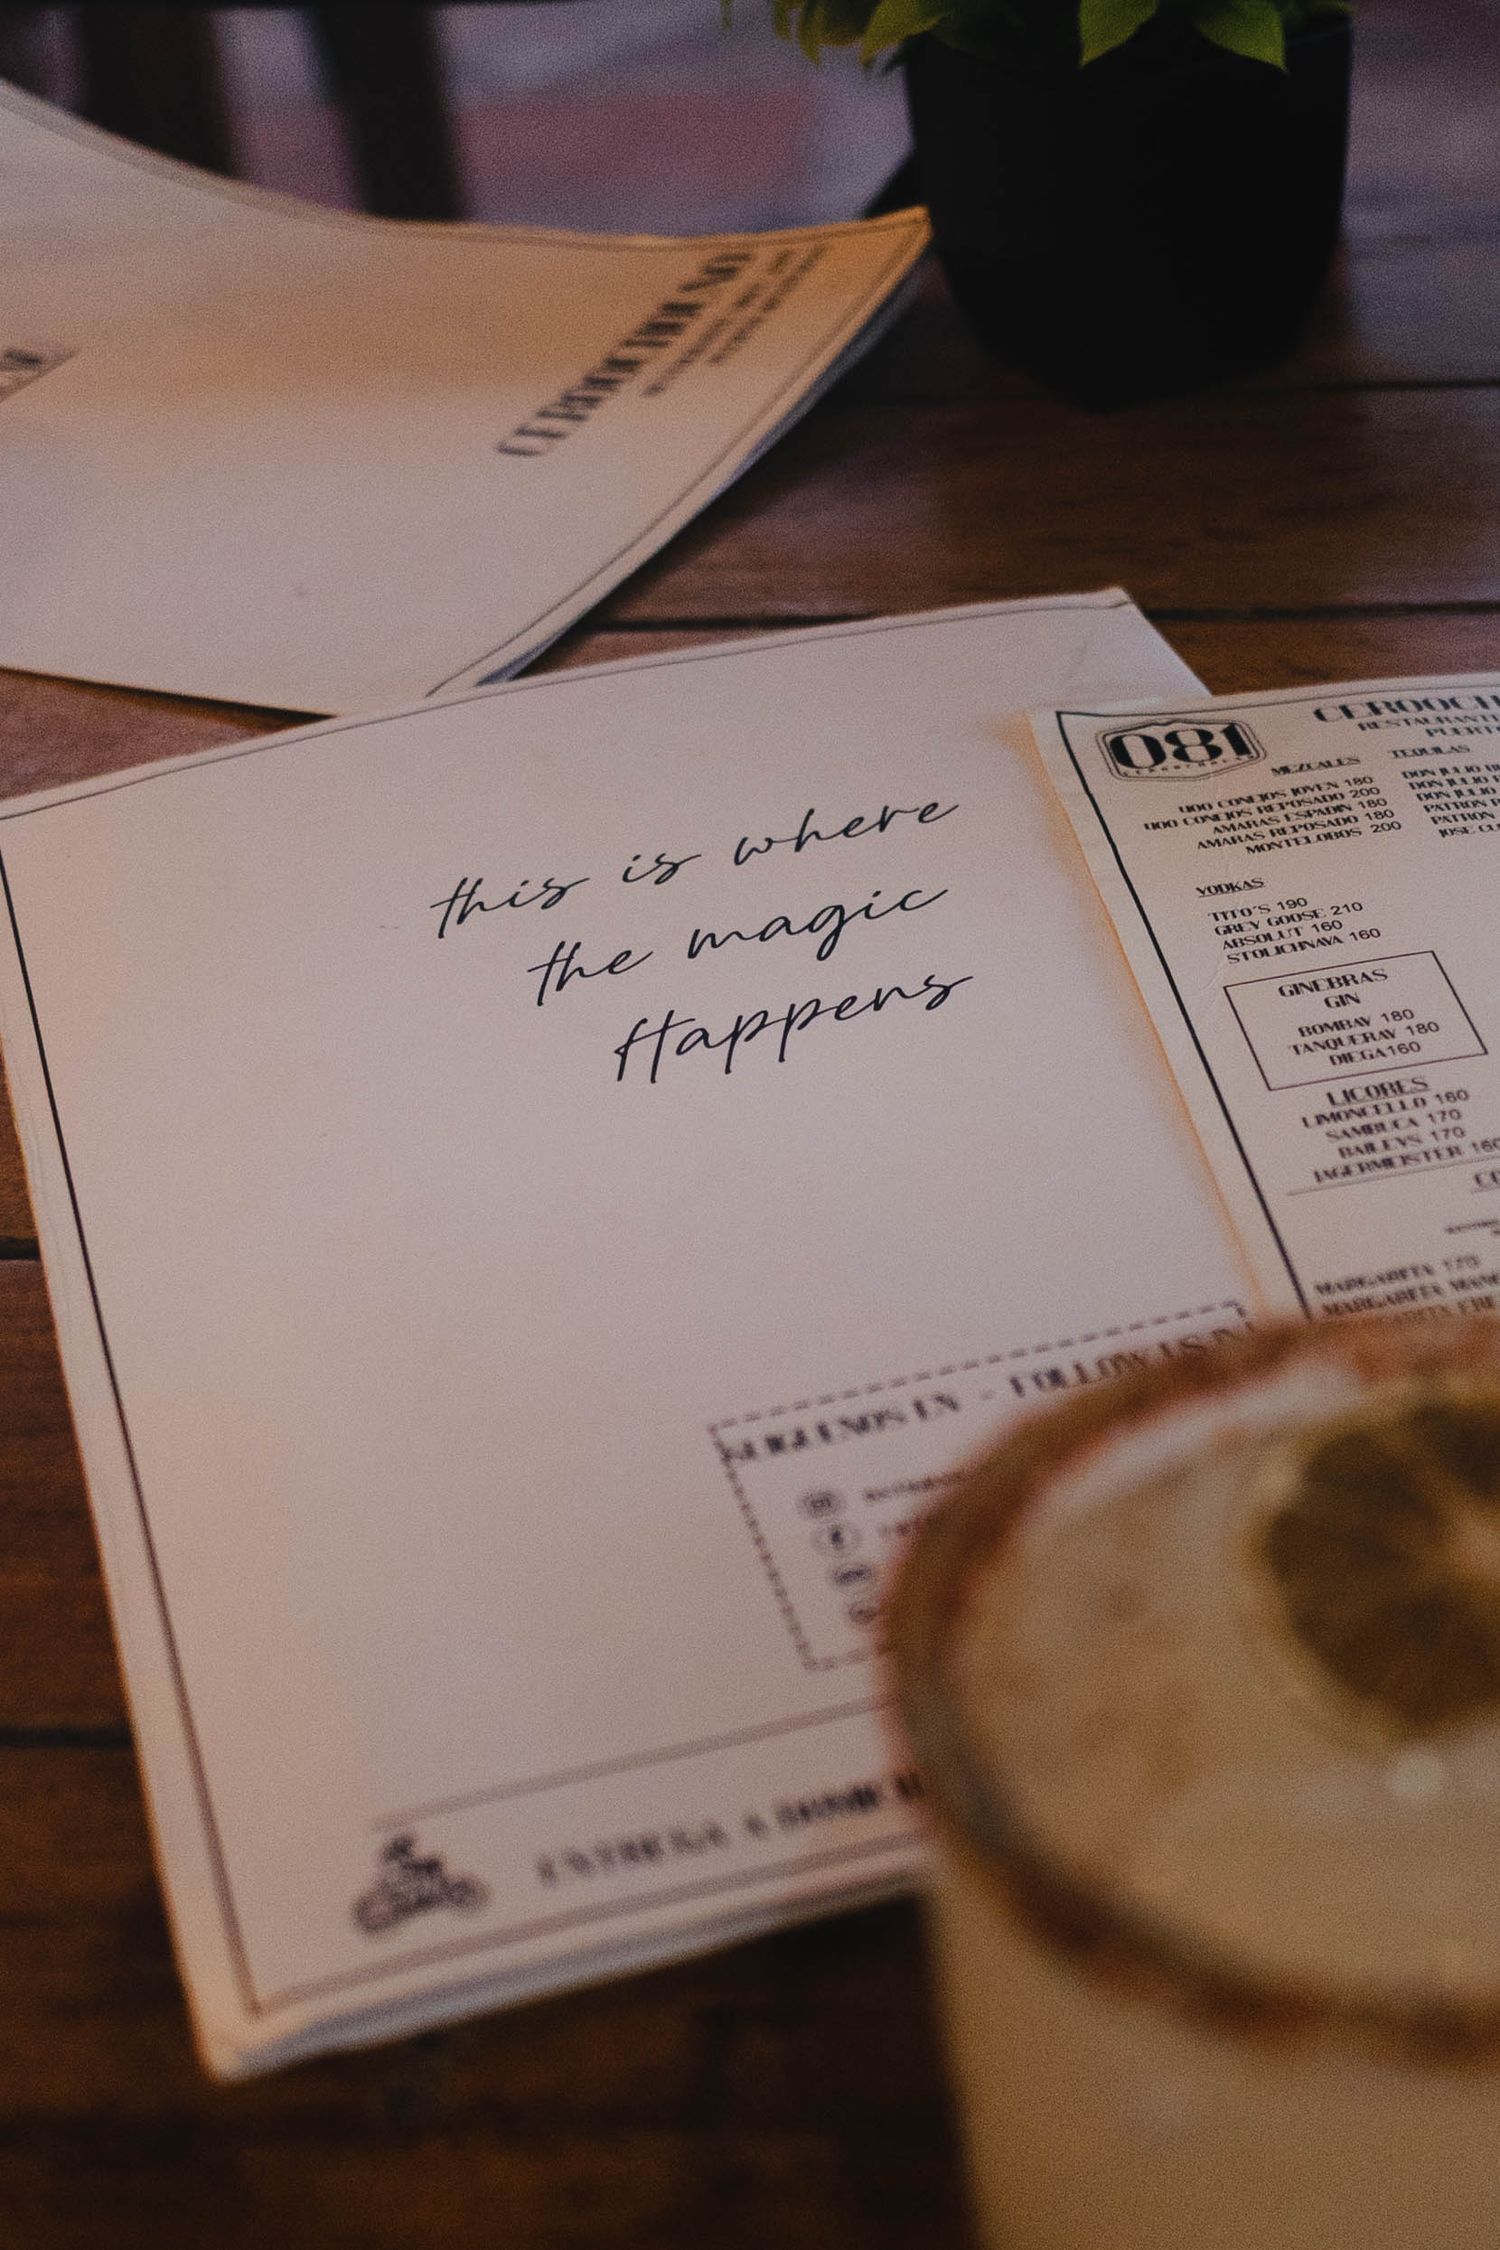 CEROOCHOUNO
this is where
the magic
Happens
081
CEROOCH
RESTAURANT
PUERT
MEZCALES
UOO CONEJOS JOVEN 180
UOO CONEJOS REPOSADO 200
AMARAS ESPADIN 180
AMARAS REPOSADO 180
MONTELOBOS 200
TEQUILAS
DON JULIO
DON JULIO
DON JULIO
PATRON
PATRON
JOSE
VODKAS
TITO'S 190
GREY GOOSE 210
ABSOLUT 160
STOLICHNAYA 160
GINEBRAS
GIN
BOMBAY 180
TANQUERAY 180
DIEGA160
LICORES
LIMONCELLO 160
SAMBUCA 170
BAILEYS 170
JAGERMEISTER 160
MARGARITA 170
MARGARITA
SIGUENOS EN - FOLLOW US IN
ENTREGA A